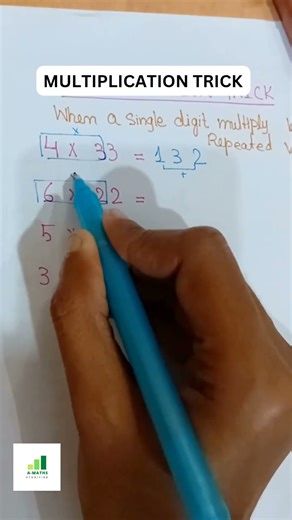 MULTIPLICATION TRICK
When a single digit multiply
Repeated
4 x 33 = 132
6 x 22 =
5
3
A-MATHS